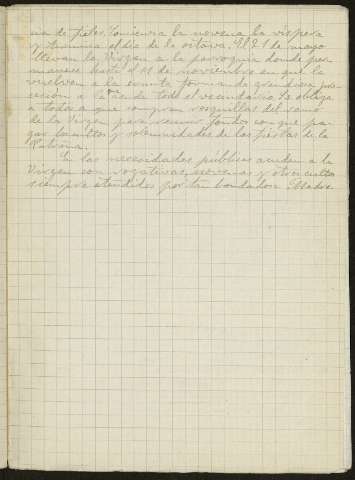 na de fieles. Comienza la novena la víspera
y termina el día de la octava. El 21 de mayo
llevan la Virgen a la parroquia donde per
manece hasta el 11 de noviembre en que la
vuelven a la ermita formando grandiosa pro
cesión a la de todo el vecindario. Se obliga
a todos a que compren rosquillas del ramo
de la Virgen para reunir fondos con que pa
gar los cultos y solemnidades de las fiestas de la
Patrona.
En las necesidades públicas acuden a la
Virgen con rogativas, novenas y otros cultos
siempre atendidos por tan bondadosa Madre